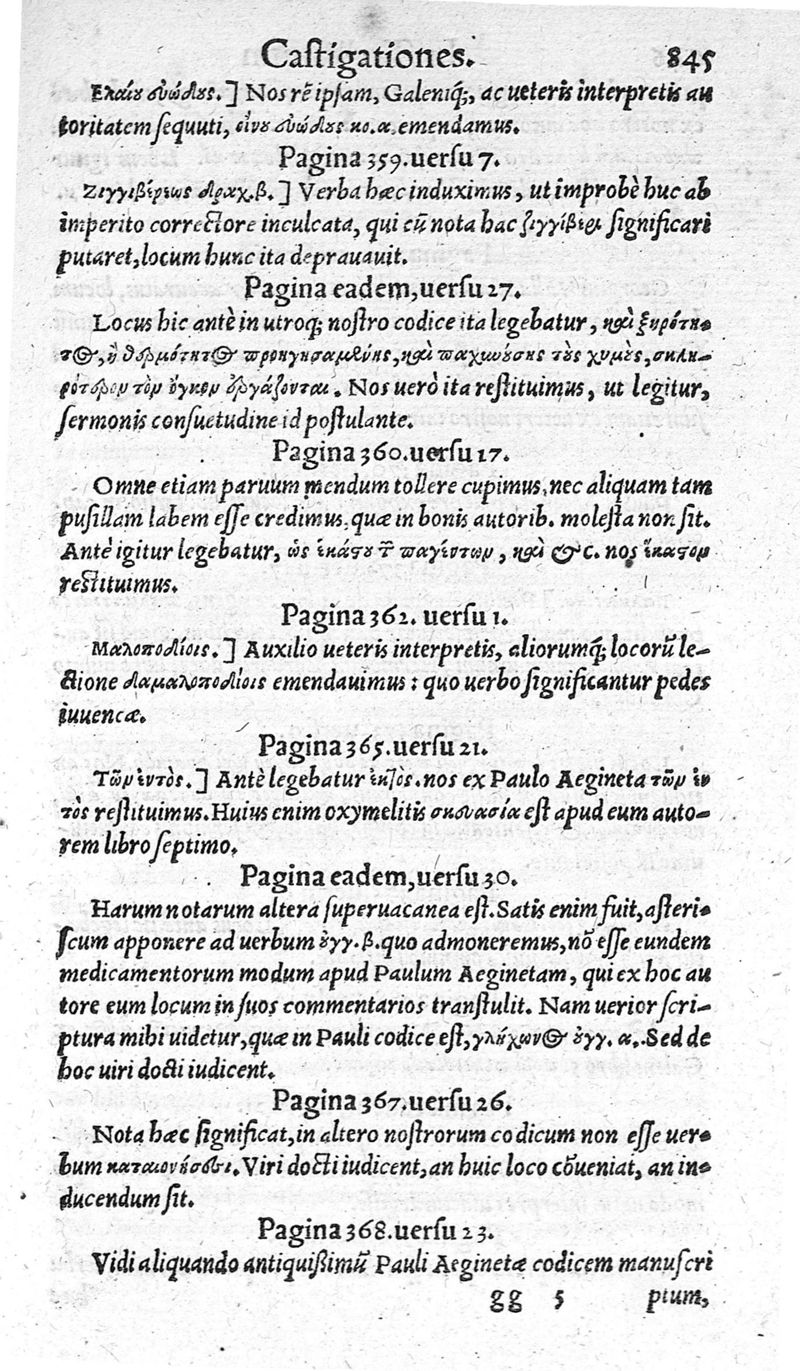 Castigationes. 845
Ελαίου ευώδους.] Nos rē ipsam, Galeniq́;, ac ueteris interpretis au
toritatem sequuti, οἴνου ευώδους κο. α. emendamus.
Pagina 359. uersu 7.
Ζιγγιβέρεως δραχ. β.] Verba hæc induximus, ut improbè huc ab
imperito correctore inculcata, qui cũ nota hac ζιγγίβερι significari
putaret, locum hunc ita deprauauit.
Pagina eadem, uersu 27.
Locus hic antè in utroq; nostro codice ita legebatur, καὶ ξηρότη-
τος, ἢ θερμότητος προηγησαμένης, καὶ παχυνούσης τοὺς χυμοὺς, σκλη-
ρότερον τὸν ὄγκον ἐργάζονται. Nos uerò ita restituimus, ut legitur,
sermonis consuetudine id postulante.
Pagina 360. uersu 17.
Omne etiam paruum mendum tollere cupimus, nec aliquam tam
pusillam labem esse credimus, quæ in bonis autorib. molesta non sit.
Antè igitur legebatur, ὡς ἑκάστου τῶν παγέντων, καὶ &c. nos ἕκαστον
restituimus.
Pagina 362. uersu 1.
Μαλοποδίοις.] Auxilio ueteris interpretis, aliorumq́; locorũ le-
ctione δαμαλοποδίοις emendauimus: quo uerbo significantur pedes
iuuencæ.
Pagina 365. uersu 21.
Τῶν ἐντὸς.] Antè legebatur ἐκτὸς. nos ex Paulo Aegineta τῶν ἐν
τὸς restituimus. Huius enim oxymelitis σκευασία est apud eum auto-
rem libro septimo.
Pagina eadem, uersu 30.
Harum notarum altera superuacanea est. Satis enim fuit, asteri-
scum apponere ad uerbum ἐγγ. β. quo admoneremus, nõ esse eundem
medicamentorum modum apud Paulum Aeginetam, qui ex hoc au
tore eum locum in suos commentarios transtulit. Nam uerior scri-
ptura mihi uidetur, quæ in Pauli codice est, γλήχωνος ἐγγ. α. Sed de
hoc uiri docti iudicent.
Pagina 367. uersu 26.
Nota hæc significat, in altero nostrorum codicum non esse uer-
bum καταιονήσθαι. Viri docti iudicent, an huic loco cõueniat, an in-
ducendum sit.
Pagina 368. uersu 23.
Vidi aliquando antiquissimũ Pauli Aeginetæ codicem manuscri
gg 5 ptum,